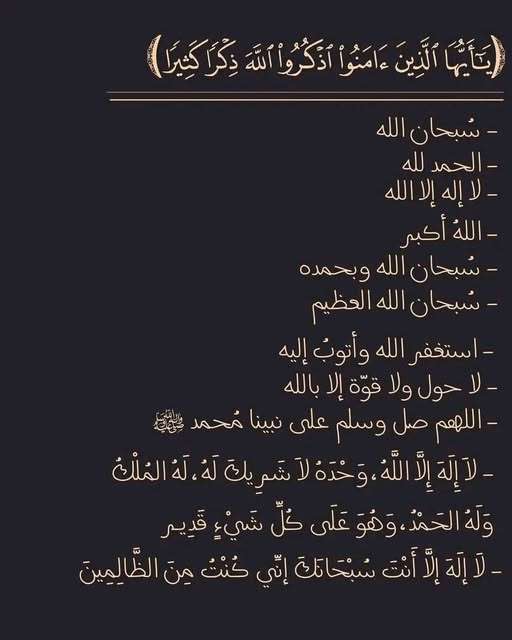 ﴿يَـٰٓأَيُّهَا ٱلَّذِينَ ءَامَنُوا۟ ٱذْكُرُوا۟ ٱللَّهَ ذِكْرًا كَثِيرًا﴾
- سُبحان الله
- الحمد لله
- لا إله إلا الله
- اللهُ أكبر
- سُبحان الله وبحمده
- سُبحان الله العظيم
- استغفر الله وأتوبُ إليه
- لا حول ولا قوّة إلا بالله
- اللهم صل وسلم على نبينا مُحمد ﷺ
- لاَ إِلَهَ إِلَّا اللَّهُ، وَحْدَهُ لاَ شَرِيكَ لَهُ، لَهُ المُلْكُ
وَلَهُ الحَمْدُ، وَهُوَ عَلَى كُلِّ شَيْءٍ قَدِير
- لَا إلَهَ إلَّا أَنْتَ سُبْحَانَكَ إنِّي كُنْتُ مِنَ الظَّالِمِينَ